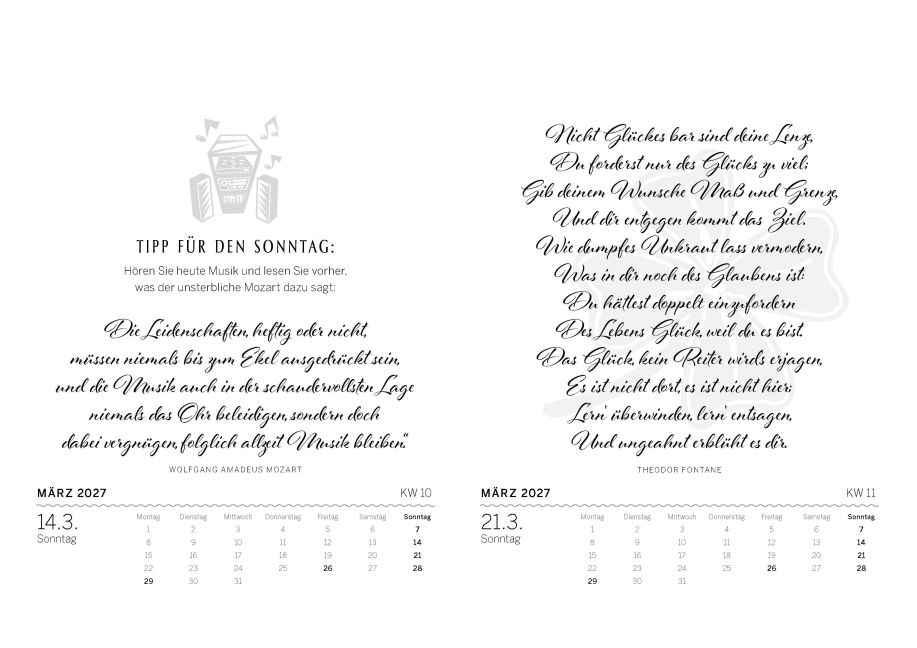 TIPP FÜR DEN SONNTAG:
Hören Sie heute Musik und lesen Sie vorher,
was der unsterbliche Mozart dazu sagt:
Die Leidenschaften, heftig oder nicht,
müssen niemals bis zum Ekel ausgedrückt sein,
und die Musik auch in der schaudervollsten Lage
niemals das Ohr beleidigen, sondern doch
dabei vergnügen, folglich allzeit Musik bleiben.“
WOLFGANG AMADEUS MOZART
MÄRZ 2027 KW 10
14.3.
Sonntag
Montag Dienstag Mittwoch Donnerstag Freitag Samstag Sonntag
1 2 3 4 5 6 7
8 9 10 11 12 13 14
15 16 17 18 19 20 21
22 23 24 25 26 27 28
29 30 31
Nicht Glückes bar sind deine Lenze,
Du forderst nur des Glücks zu viel;
Gib deinem Wunsche Maß und Grenze,
Und dir entgegen kommt das Ziel.
Wie dumpfes Unkraut lass vermodern,
Was in dir noch des Glaubens ist:
Du hättest doppelt einzufordern
Des Lebens Glück, weil du es bist.
Das Glück, kein Reiter wirds erjagen,
Es ist nicht dort, es ist nicht hier;
Lern' überwinden, lern' entsagen,
Und ungeahnt erblüht es dir.
THEODOR FONTANE
MÄRZ 2027 KW 11
21.3.
Sonntag
Montag Dienstag Mittwoch Donnerstag Freitag Samstag Sonntag
1 2 3 4 5 6 7
8 9 10 11 12 13 14
15 16 17 18 19 20 21
22 23 24 25 26 27 28
29 30 31